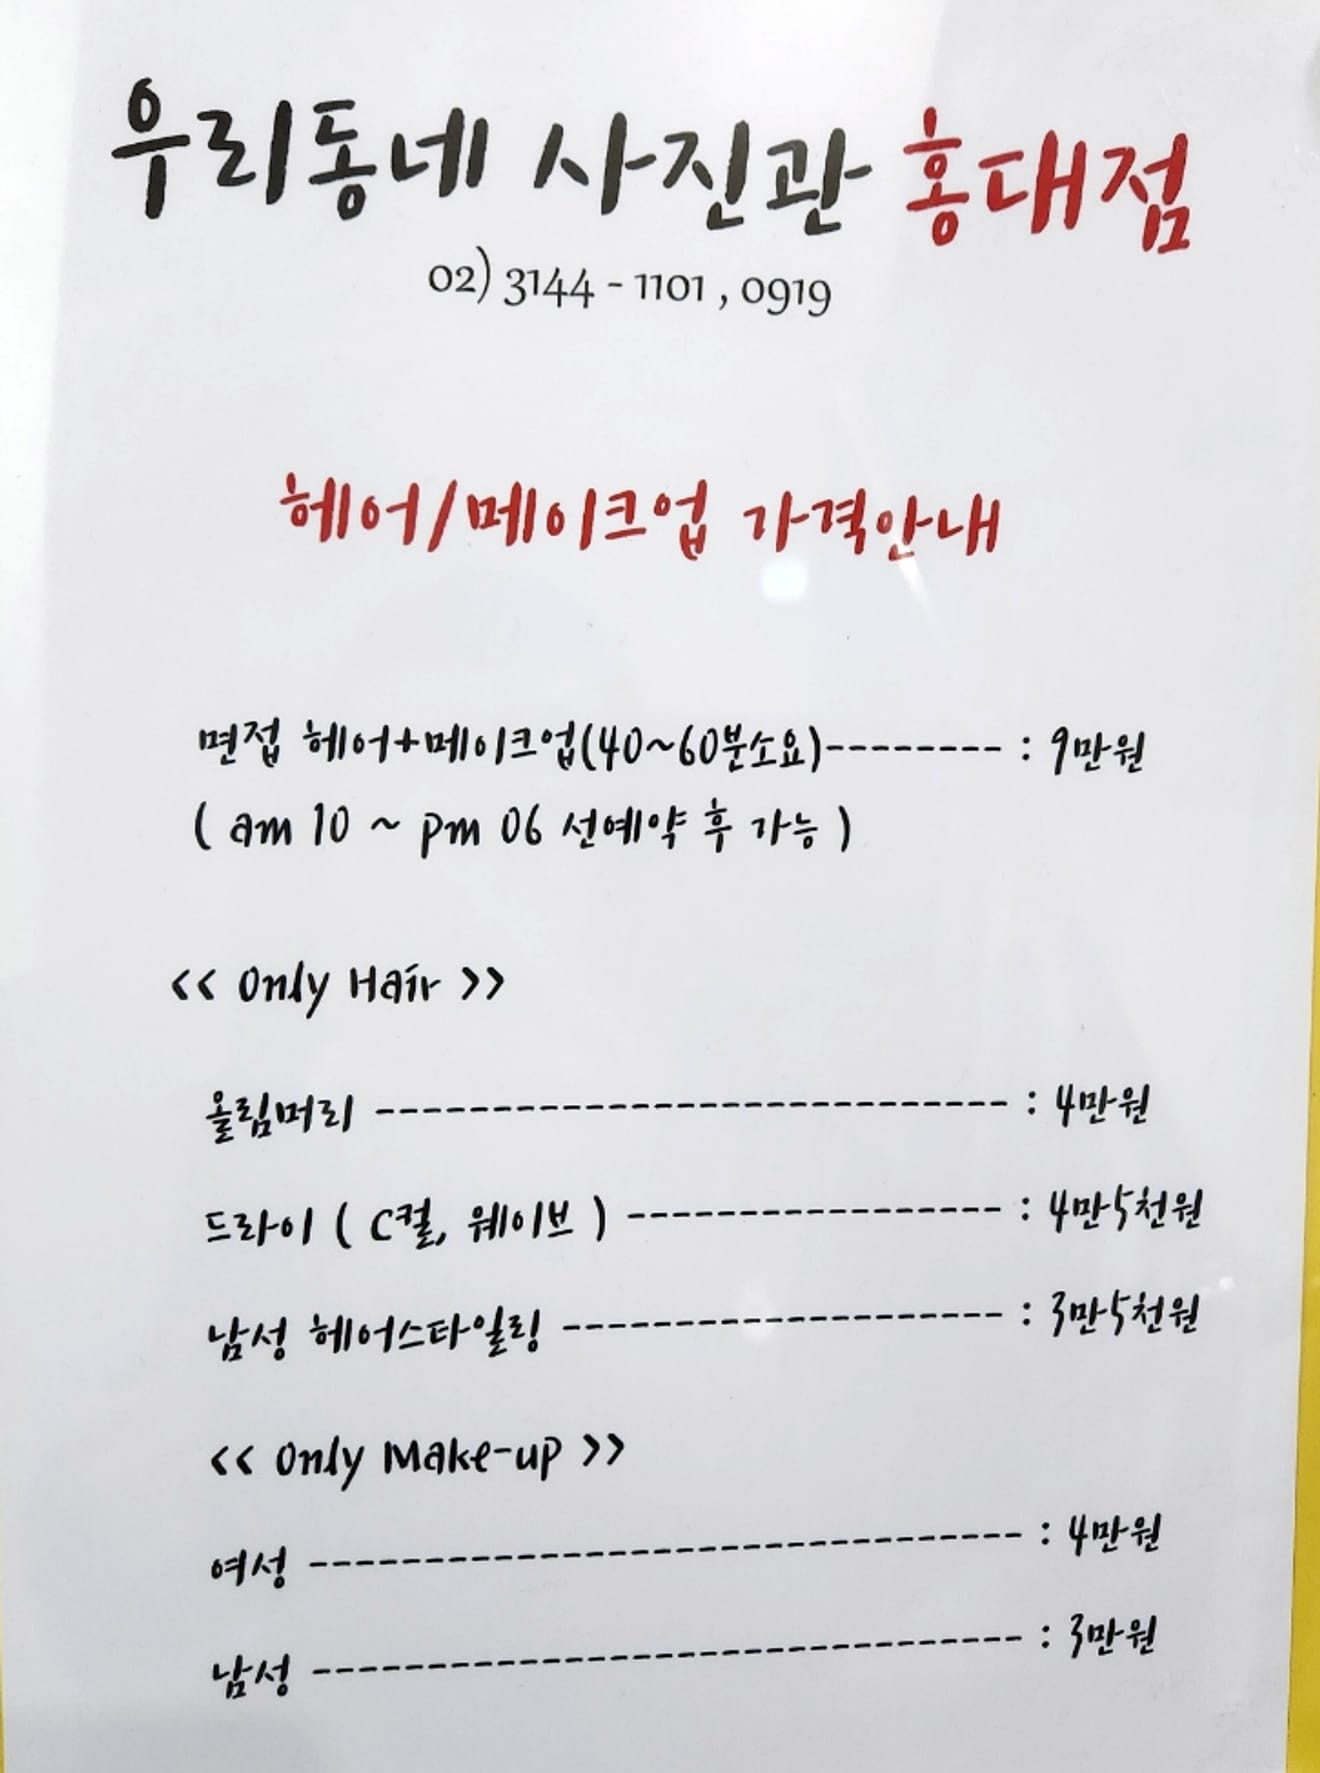 우리동네 사진관 홍대점
02) 3144 - 1101 , 0919
헤어/메이크업 가격안내
면접 헤어+메이크업(40~60분소요)-------- : 9만원
( am 10 ~ pm 06 선예약 후 가능 )
<< Only Hair >>
올림머리 ----------------------------- : 4만원
드라이 ( C컬, 웨이브 ) ----------------- : 4만5천원
남성 헤어스타일링 -------------------- : 3만5천원
<< Only Make-up >>
여성 --------------------------------- : 4만원
남성 --------------------------------- : 3만원